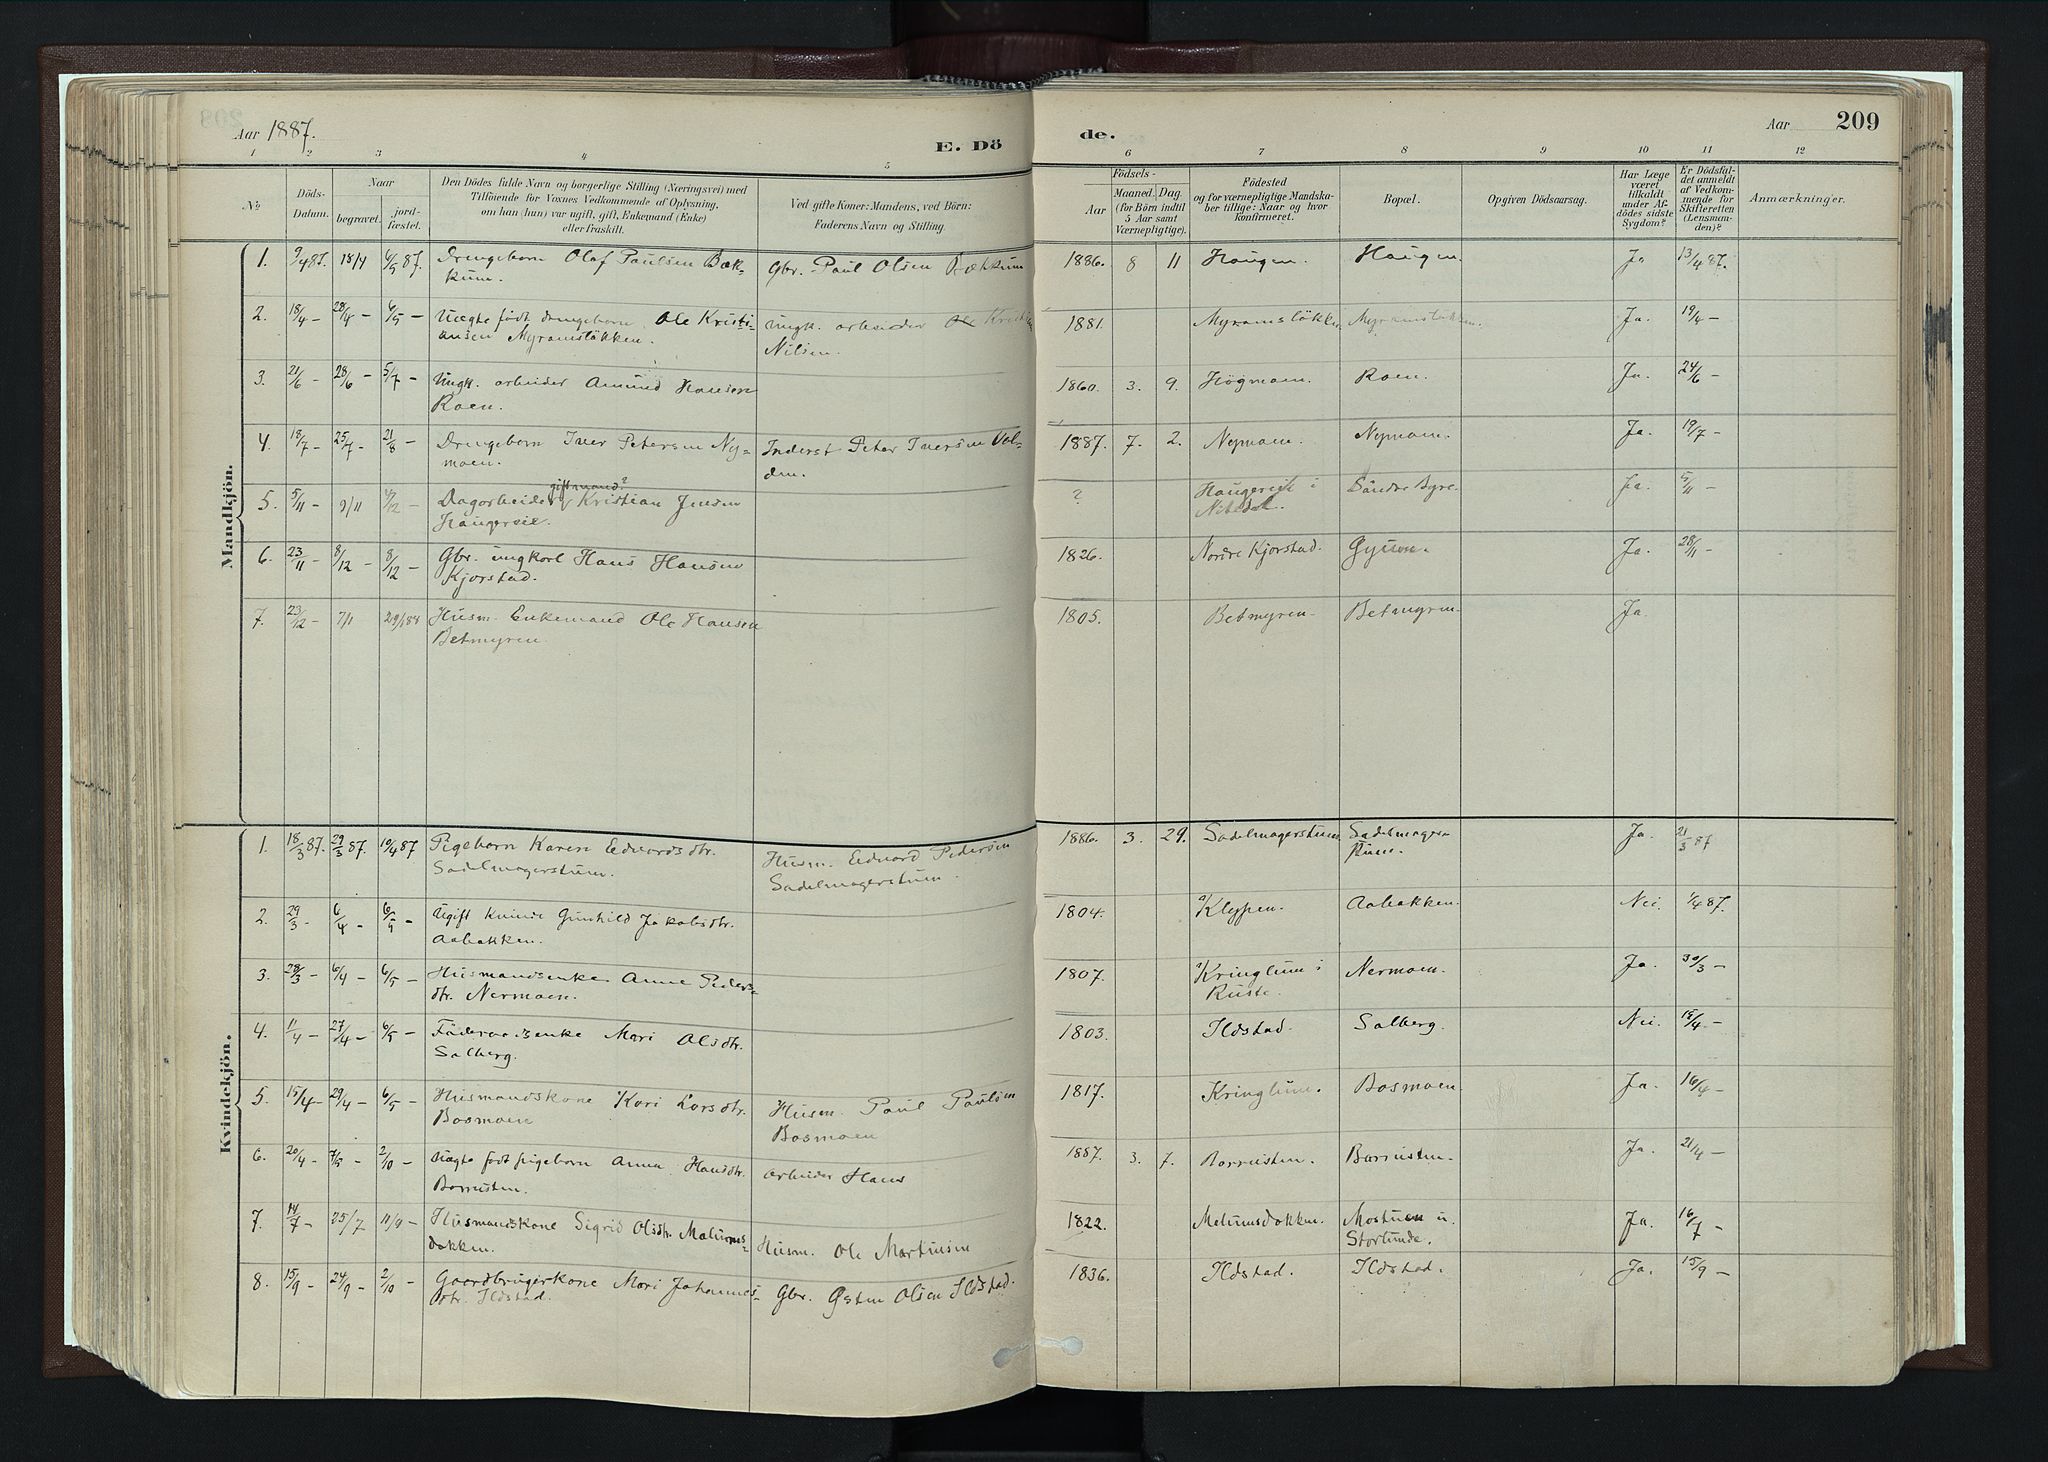 Aar 1887. E. Dö
de. Aar 209
1 2 3 4 5 6 7 8 9 10 11 12
No.
Döds-
Datum.
Naar
begravet.
jord-
fæstet.
Den Dödes fulde Navn og borgerlige Stilling (Næringsvei) med
Tilföiende for Voxnes Vedkommende af Oplysning,
om han (hun) var ugift, gift, Enkemand (Enke)
eller fraskilt.
Ved gifte Koner: Mandens, ved Börn:
Faderens Navn og Stilling.
Födsels-
Aar
Maaned. Dag.
(for Börn indtil
5 Aar samt
Værnepligtige).
Födested
og for værnepligtige Mandska-
ber tillige: Naar og hvor
konfirmeret.
Bopæl.
Opgiven Dödsaarsag.
Har Læge
været
tilkaldt
under Af-
dödes sidste
Sygdom?
Er Dödsfal-
det anmeldt
af Vedkom-
mende for
Skifteretten
(Lensman-
den)?
Anmærkninger.
Mandkjön.
1. 9/4 87. 18/4 6/5 87. Drengebarn Olaf Paulsen Bæk- Gbr. Paul Olsen Bækkum 1886. 8 11 Haugen. Haugen. Ja 13/4 87.
kum.
2. 18/4 – 28/4 – 6/5 – Uægte født drengebarn Ole Kristi- Ungk. arbeider Ole Kristian 1881. Myramsløkken Myramsløkken. Ja. 19/4 –
ansen Myramsløkken. Nilsen.
3. 21/6 – 28/6 – 5/7 – Ungk. arbeider Amund Hansen 1860. 3. 9. Høgmoen. Roen. Ja. 24/6 –
Roen.
4. 18/7 – 25/7 – 21/8 – Drengebarn Iver Petersen Ny- Inderst Peter Iversen Vol- 1887. 7. 2. Nymoen. Nymoen. Ja. 19/7 –
moen. den.
giftmand?
5. 5/11 – 9/11 4/12 – Dagarbeider Kristian Jensen ? Haugereie i Søndre Byre. Ja. 5/11 –
Haugereie. Nitedal.
6. 23/11 – 8/12 – 8/12 – Gbr. ungkarl Hans Hansen 1826. Nordre Kjorstad. Ja. 28/11 –
Kjorstad.
7. 23/12 – 7/1 29/1 88 Husm. Enkemand Ole Hansen 1805. Betmyren. Betmyren. Ja.
Betmyren.
Kvindekjön.
1. 18/3 87. 29/3 87. 10/4 87 Pigebarn Karen Edvardsdtr. Husm. Edvard Pedersen 1886. 3. 29. Sadelmagerstuen. Sadelmager- Ja. 21/3 87
Sadelmagerstuen. Sadelmagerstuen. stuen.
2. 29/3 – 6/4 – 6/5 – Ugift Kvinde Gunhild Jakobsdtr. 1804. Klyppen. Aabakken. Nei. 1/4 87.
Aabakken.
3. 28/3 – 6/4 – 6/5 – Husmandsenke Anne Peders- 1807. Kringlum i Nermoen. Ja. 30/3 –
dtr. Nermoen. Ruste.
4. 11/4 – 27/4 – 6/5 – Føderaadsenke Mari Olsdtr. 1803. Ildstad. Solberg. Nei. 15/4 –
Solberg.
5. 15/4 – 29/4 – 6/5 – Husmandskone Kari Larsdtr. Husm. Paul Paulsen 1817. Kringlum. Bosmoen. Ja. 16/4 –
Bosmoen Bosmoen
6. 20/4 – 7/5 – 2/10 – Uægte født pigebarn Anna Hansdtr. arbeider Hans 1887. 3. 7. Borrusten. Borrusten. Ja. 21/4 –
Borrusten.
7. 14/7 – 25/7 11/9 – Husmandskone Sigrid Olsdtr. Melums- Husm. Ole Martinsen 1822. Melumsdokken. Mostuen u. Ja. 16/7 –
dokken. Storlunde.
8. 15/9 – 24/9 – 2/10 – Gaardbrugerkone Mari Johannes- Gbr. Østen Olsen Ildstad. 1836. Ildstad. Ildstad. Ja. 15/9 –
dtr. Ildstad.